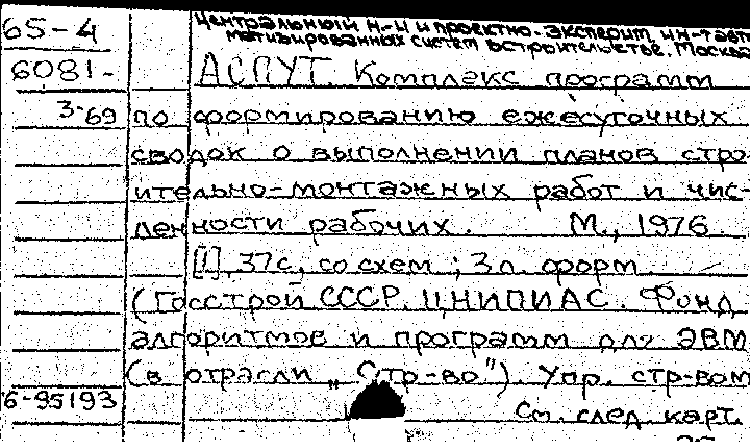 65-4
Центральный н-и и проектно-эксперит. ин-т авто
матизированных систем в строительстве. Москва
6081-
АСПУТ. Комплекс программ
3-69 по формированию ежесуточных
сводок о выполнении планов стро
ительно-монтажных работ и чис-
ленности рабочих. М., 1976
[1], 37с, со схем; 3л. форм
(Госстрой СССР. ЦНИПИАС. Фонд
алгоритмов и программ для ЭВМ
(в отрасли „Стр-во"). Упр. стр-вом
6-95193
См. след. карт.